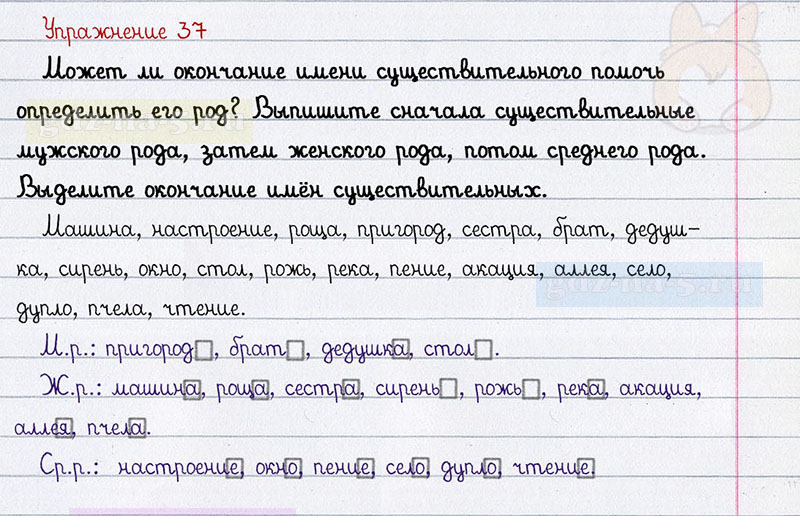 Упражнение 37
Может ли окончание имени существительного помочь
определить его род? Выпишите сначала существительные
мужского рода, затем женского рода, потом среднего рода.
Выделите окончание имён существительных.
Машина, настроение, роща, пригород, сестра, брат, дедуш-
ка, сирень, окно, стол, рожь, река, пение, акация, аллея, село,
gdz-na-5.ru
дупло, пчела, чтение.
М.р.: пригород, брат, дедушка, стол.
Ж.р.: машина, роща, сестра, сирень, рожь, река, акация,
аллея, пчела.
Ср.р.: настроение, окно, пение, село, дупло, чтение.